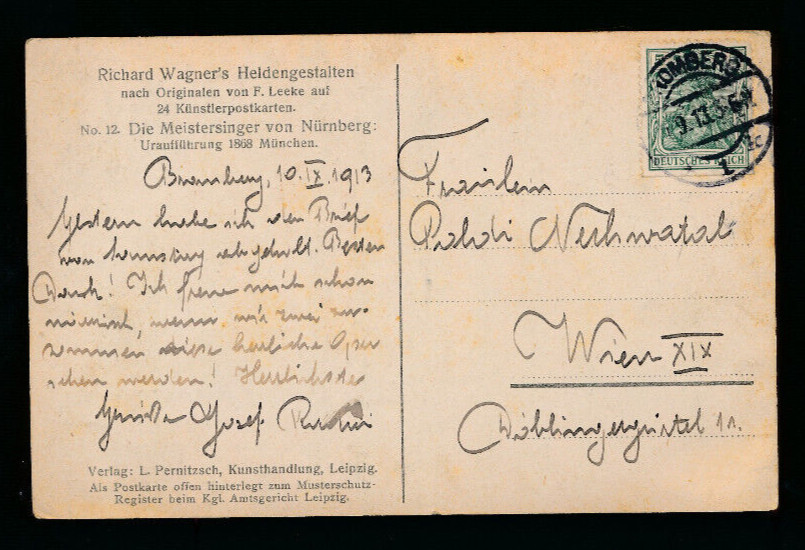 Richard Wagner's Heldengestalten
nach Originalen von F. Leeke auf
24 Künstlerpostkarten.
No. 12. Die Meistersinger von Nürnberg:
Uraufführung 1868 München.
Bromberg, 10.IX.1913
Gestern habe ich den Brief
von Samstag abgeholt. Besten
Dank! Ich freue mich schon
wenn wir zwei zu-
sammen diese herrliche Oper
sehen werden! Herzlichste
Grüße Josef
Verlag: L. Pernitzsch, Kunsthandlung, Leipzig.
Als Postkarte offen hinterlegt zum Musterschutz-
Register beim Kgl. Amtsgericht Leipzig.
BROMBERG
9.13.5
DEUTSCHES REICH
Fräulein
Poldi Nechwatal
Wien XIX
Döblingergürtel 11.